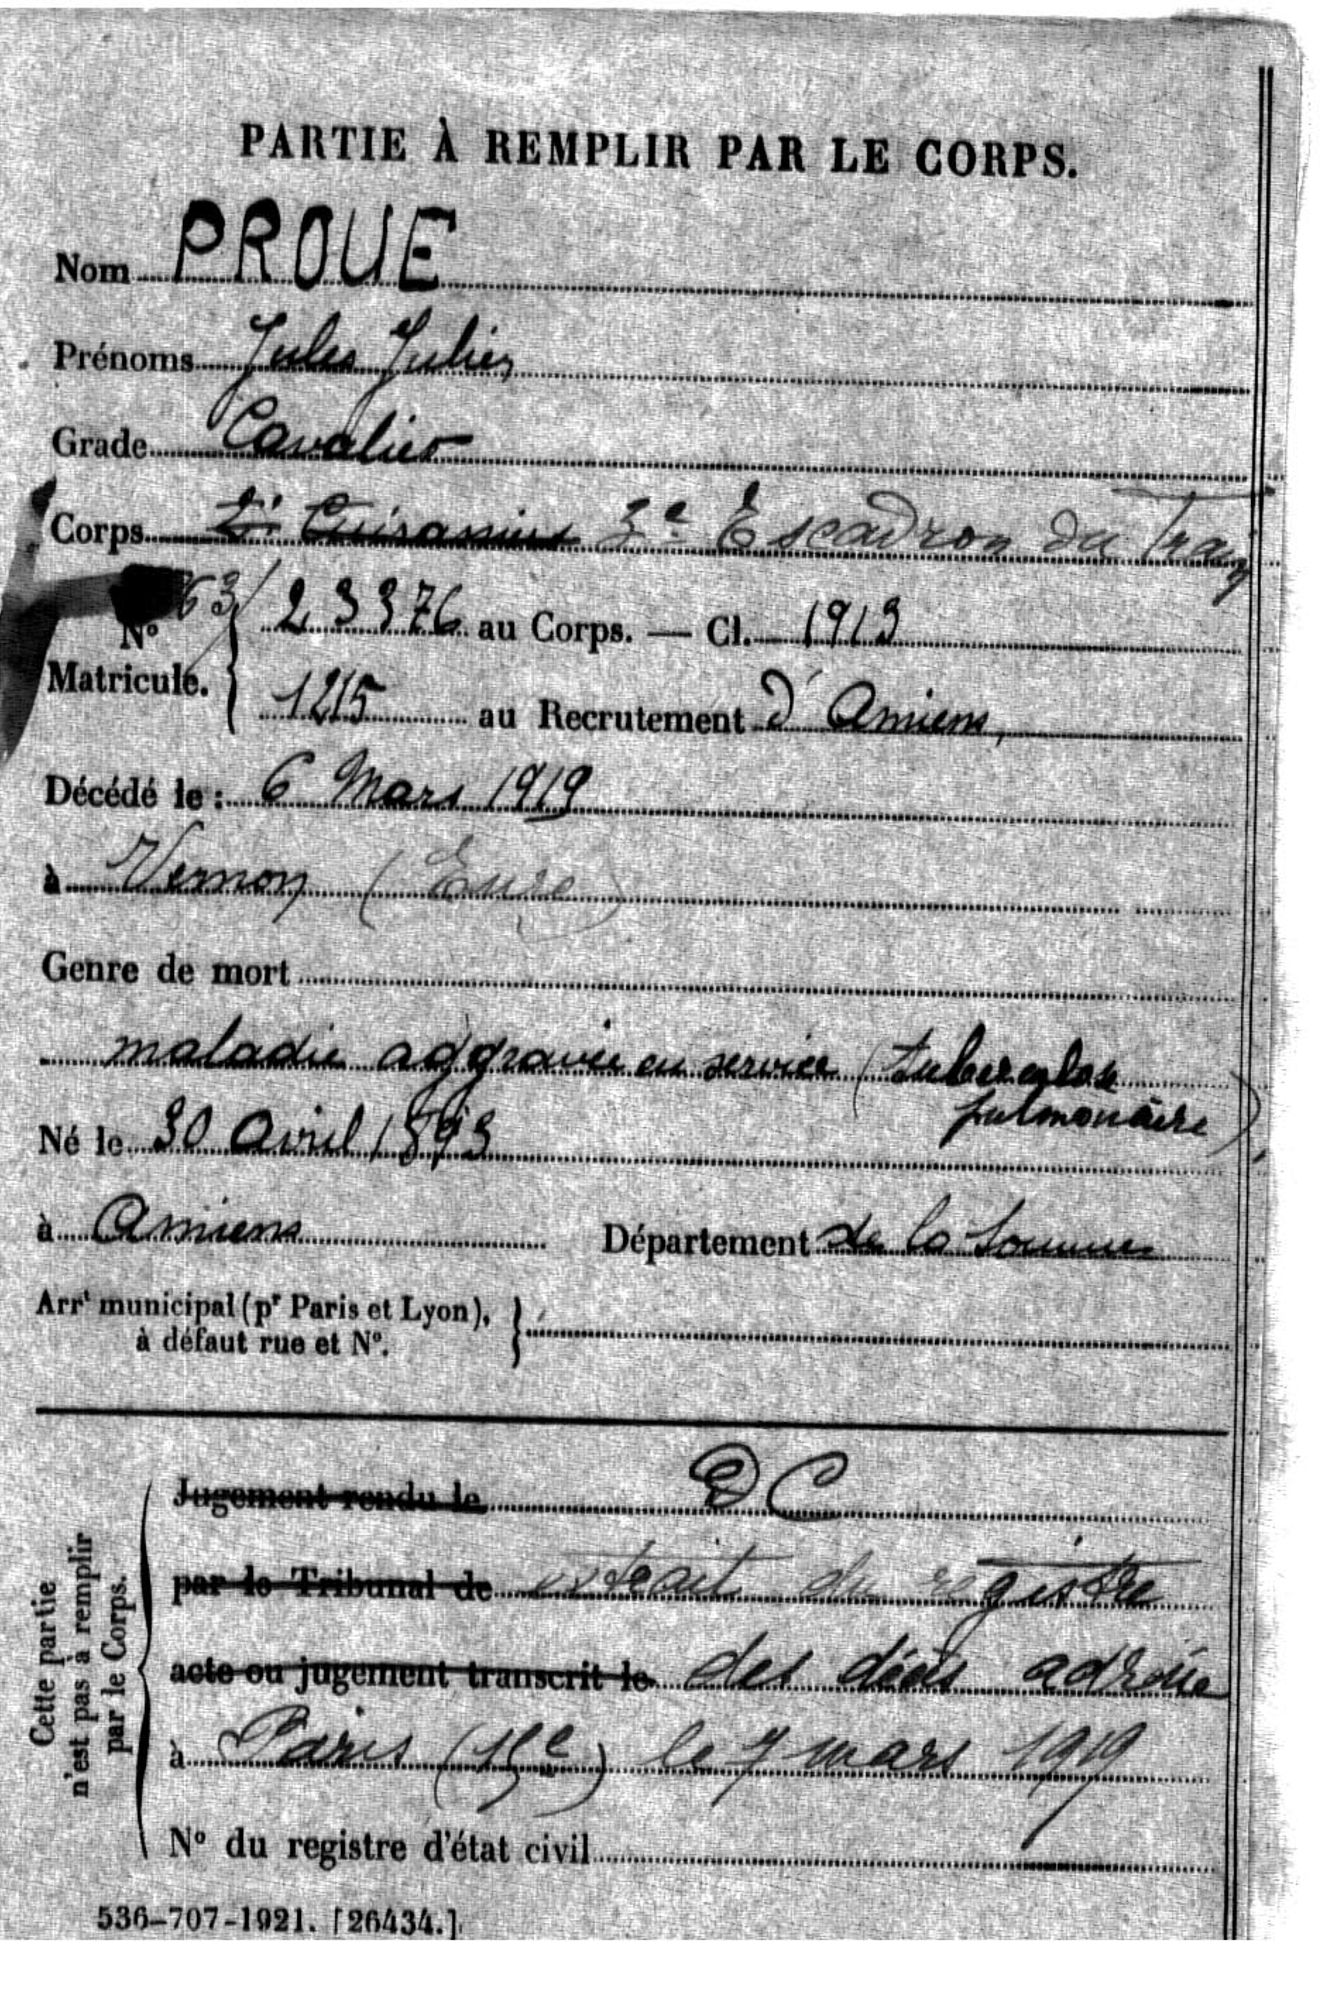 PARTIE À REMPLIR PAR LE CORPS.
Nom PROUE
Prénoms Jules Julien
Grade Cavalier
Corps 2e Cuirassiers 3e Escadron du Train
63/
N° Matricule. 23376 au Corps. — Cl. 1913
1215 au Recrutement d'Amiens,
Décédé le : 6 Mars 1919
à Vernon (Eure)
Genre de mort
maladie aggravée en service (tuberculose
pulmonaire).
Né le 30 Avril 1893
à Amiens Département de la Somme
Arrt municipal (pr Paris et Lyon),
à défaut rue et N°.
Cette partie
n'est pas à remplir
par le Corps.
Jugement rendu le DC
par le Tribunal de extrait du registre
acte ou jugement transcrit le des décès adressé
à Paris (15e) le 7 mars 1919
N° du registre d'état civil
536-707-1921. [26434.]